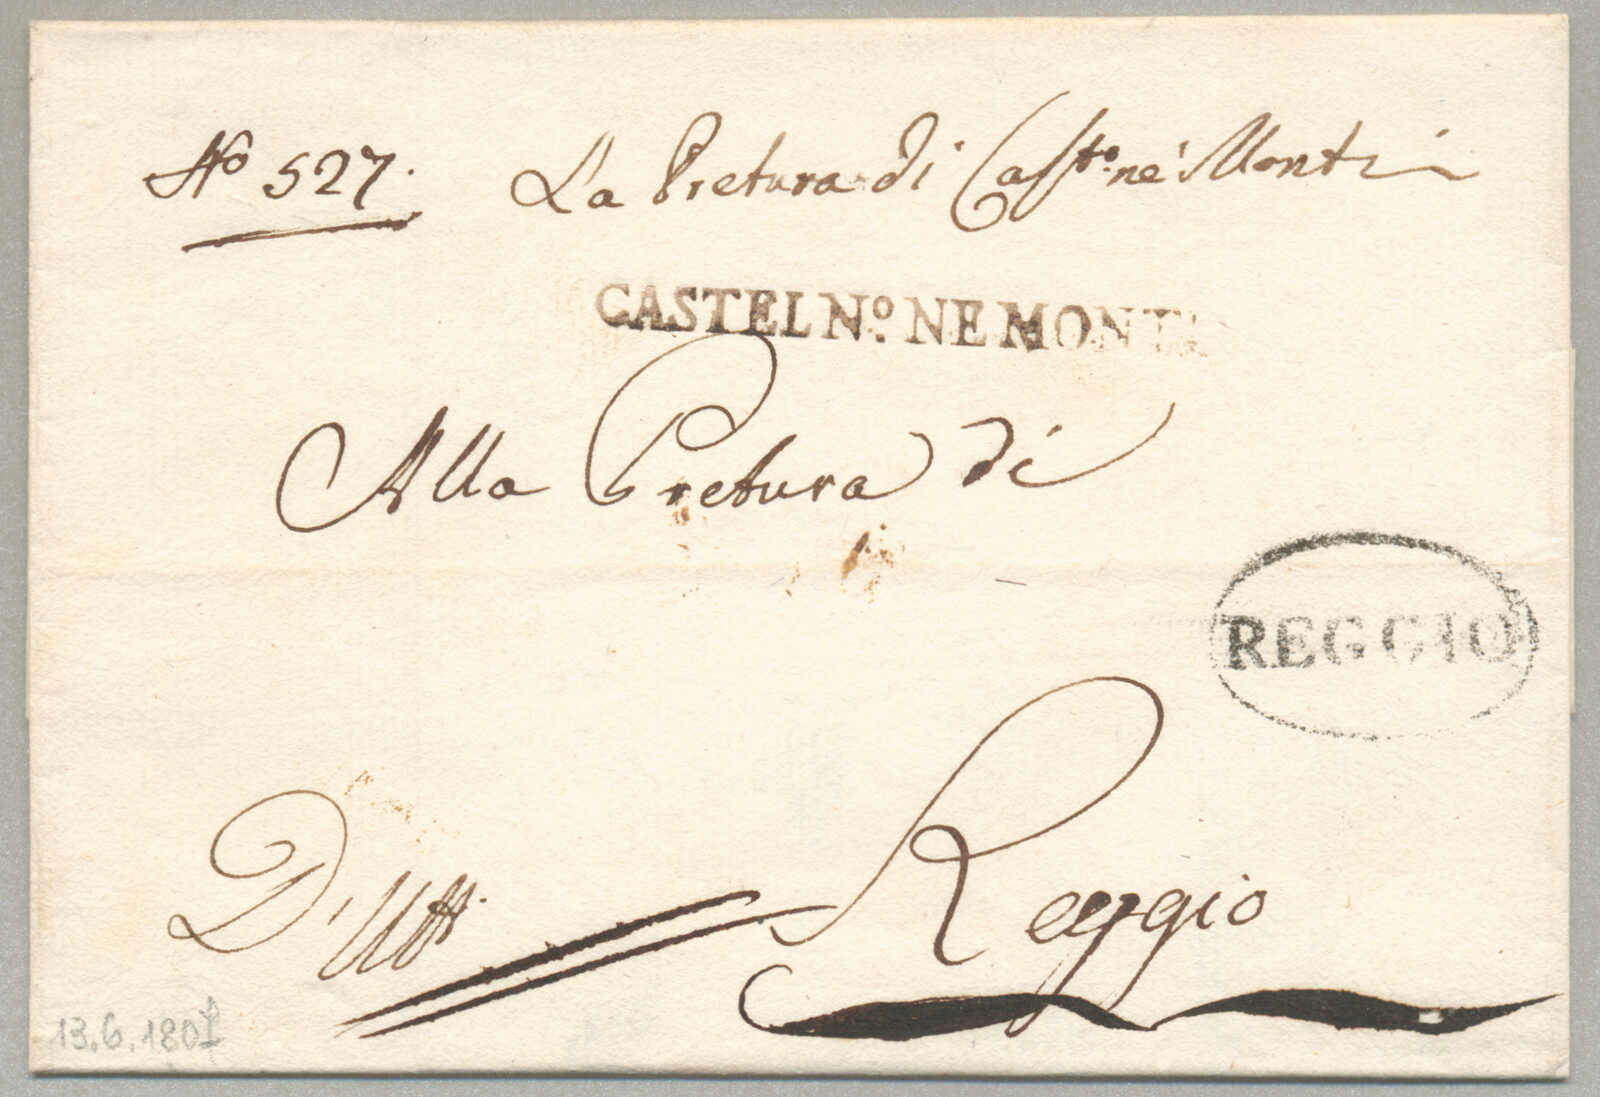 No 527. La Pretura di Casto. né Monti
CASTEL No. NE MONTI
Alla Pretura di
REGGIO
D'Utt.
Reggio
13.6.180